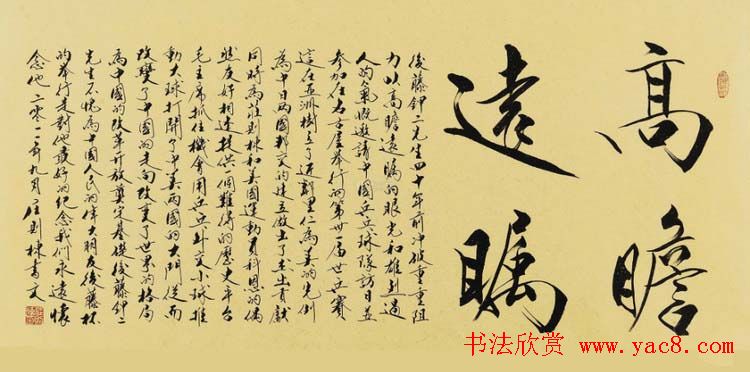 高瞻
遠瞩
後藤钾二先生四十年前冲破重重阻
力以高瞻遠瞩的眼光和雄烈過
人的氣慨邀請中國乒乓球隊訪日並
参加在名古屋舉行的第卅一届世乒赛
這在亚洲樹立了近鄰里仁為美的先例
為中日两國邦交的建立做出了杰出貢献
同時為莊则棟和美國運動員科恩的偶
然友好相逢提供一個難得的歷史平台
毛主席抓住機會用乒乓外交小球推
動大球打開了中美两國的大門從而
改變了中國的走向改变了世界的格局
為中國的改革开放奠定基礎後藤钾二
先生不愧為中國人民的偉大朋友後藤杯
的举行是對他最好的纪念我們永遠懷
念他二零一一年九月庄则棟書文
书法欣赏 www.yac8.com